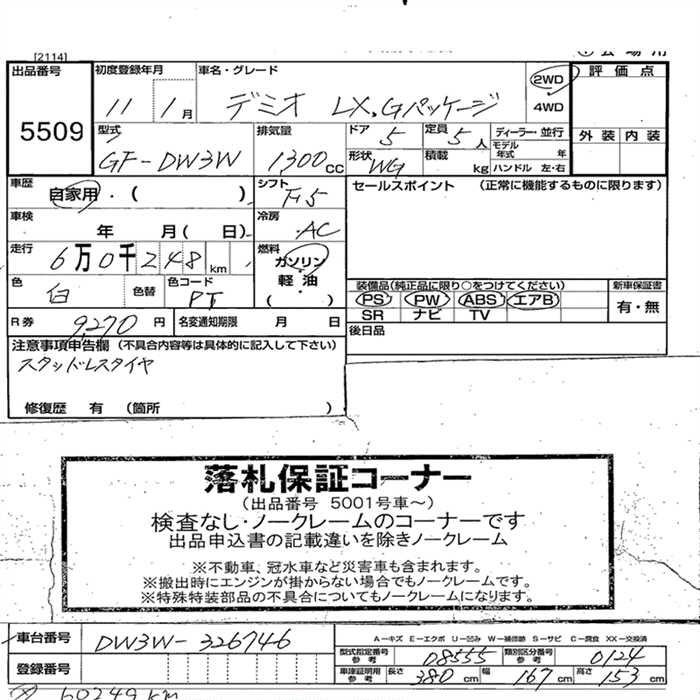 [2114]
出品番号 初度登録年月 車名・グレード 2WD 4WD 評価点
5509 11 1月 デミオ LX.Gパッケージ 外装 内装
型式 排気量 ドア 定員 ディーラー・並行
GF-DW3W 1300cc 5 5人 モデル年式 年
形状 WG 積載 kg ハンドル 左・右
車歴 自家用・( ) シフト F5 セールスポイント (正常に機能するものに限ります)
車検 年 月( 日) 冷房 AC
走行 6万0千248km 燃料 ガソリン・軽油 ( )
色 白 色替 色コード PT 装備品(純正品に限り○をつけてください) 新車保証書
PS PW ABS エアB 有・無
SR ナビ TV
R券 9,270円 名変通知期限 月 日 後日品
注意事項申告欄(不具合内容等は具体的に記入して下さい)
スタッドレスタイヤ
修復歴 有 (箇所 )
落札保証コーナー
(出品番号 5001号車~)
検査なし・ノークレームのコーナーです
出品申込書の記載違いを除きノークレーム
※不動車、冠水車など災害車も含まれます。
※搬出時にエンジンが掛からない場合でもノークレームです。
※特殊特装部品の不具合についてもノークレームになります。
車台番号 DW3W-326746 A-キズ E-エクボ U-凹み W-補修跡 S-サビ C-腐食 XX-交換済
型式指定番号参考 08555 類別区分番号参考 0124
登録番号 車庫証明用参考 長さ 380cm 幅 167cm 高さ 153cm
60249km